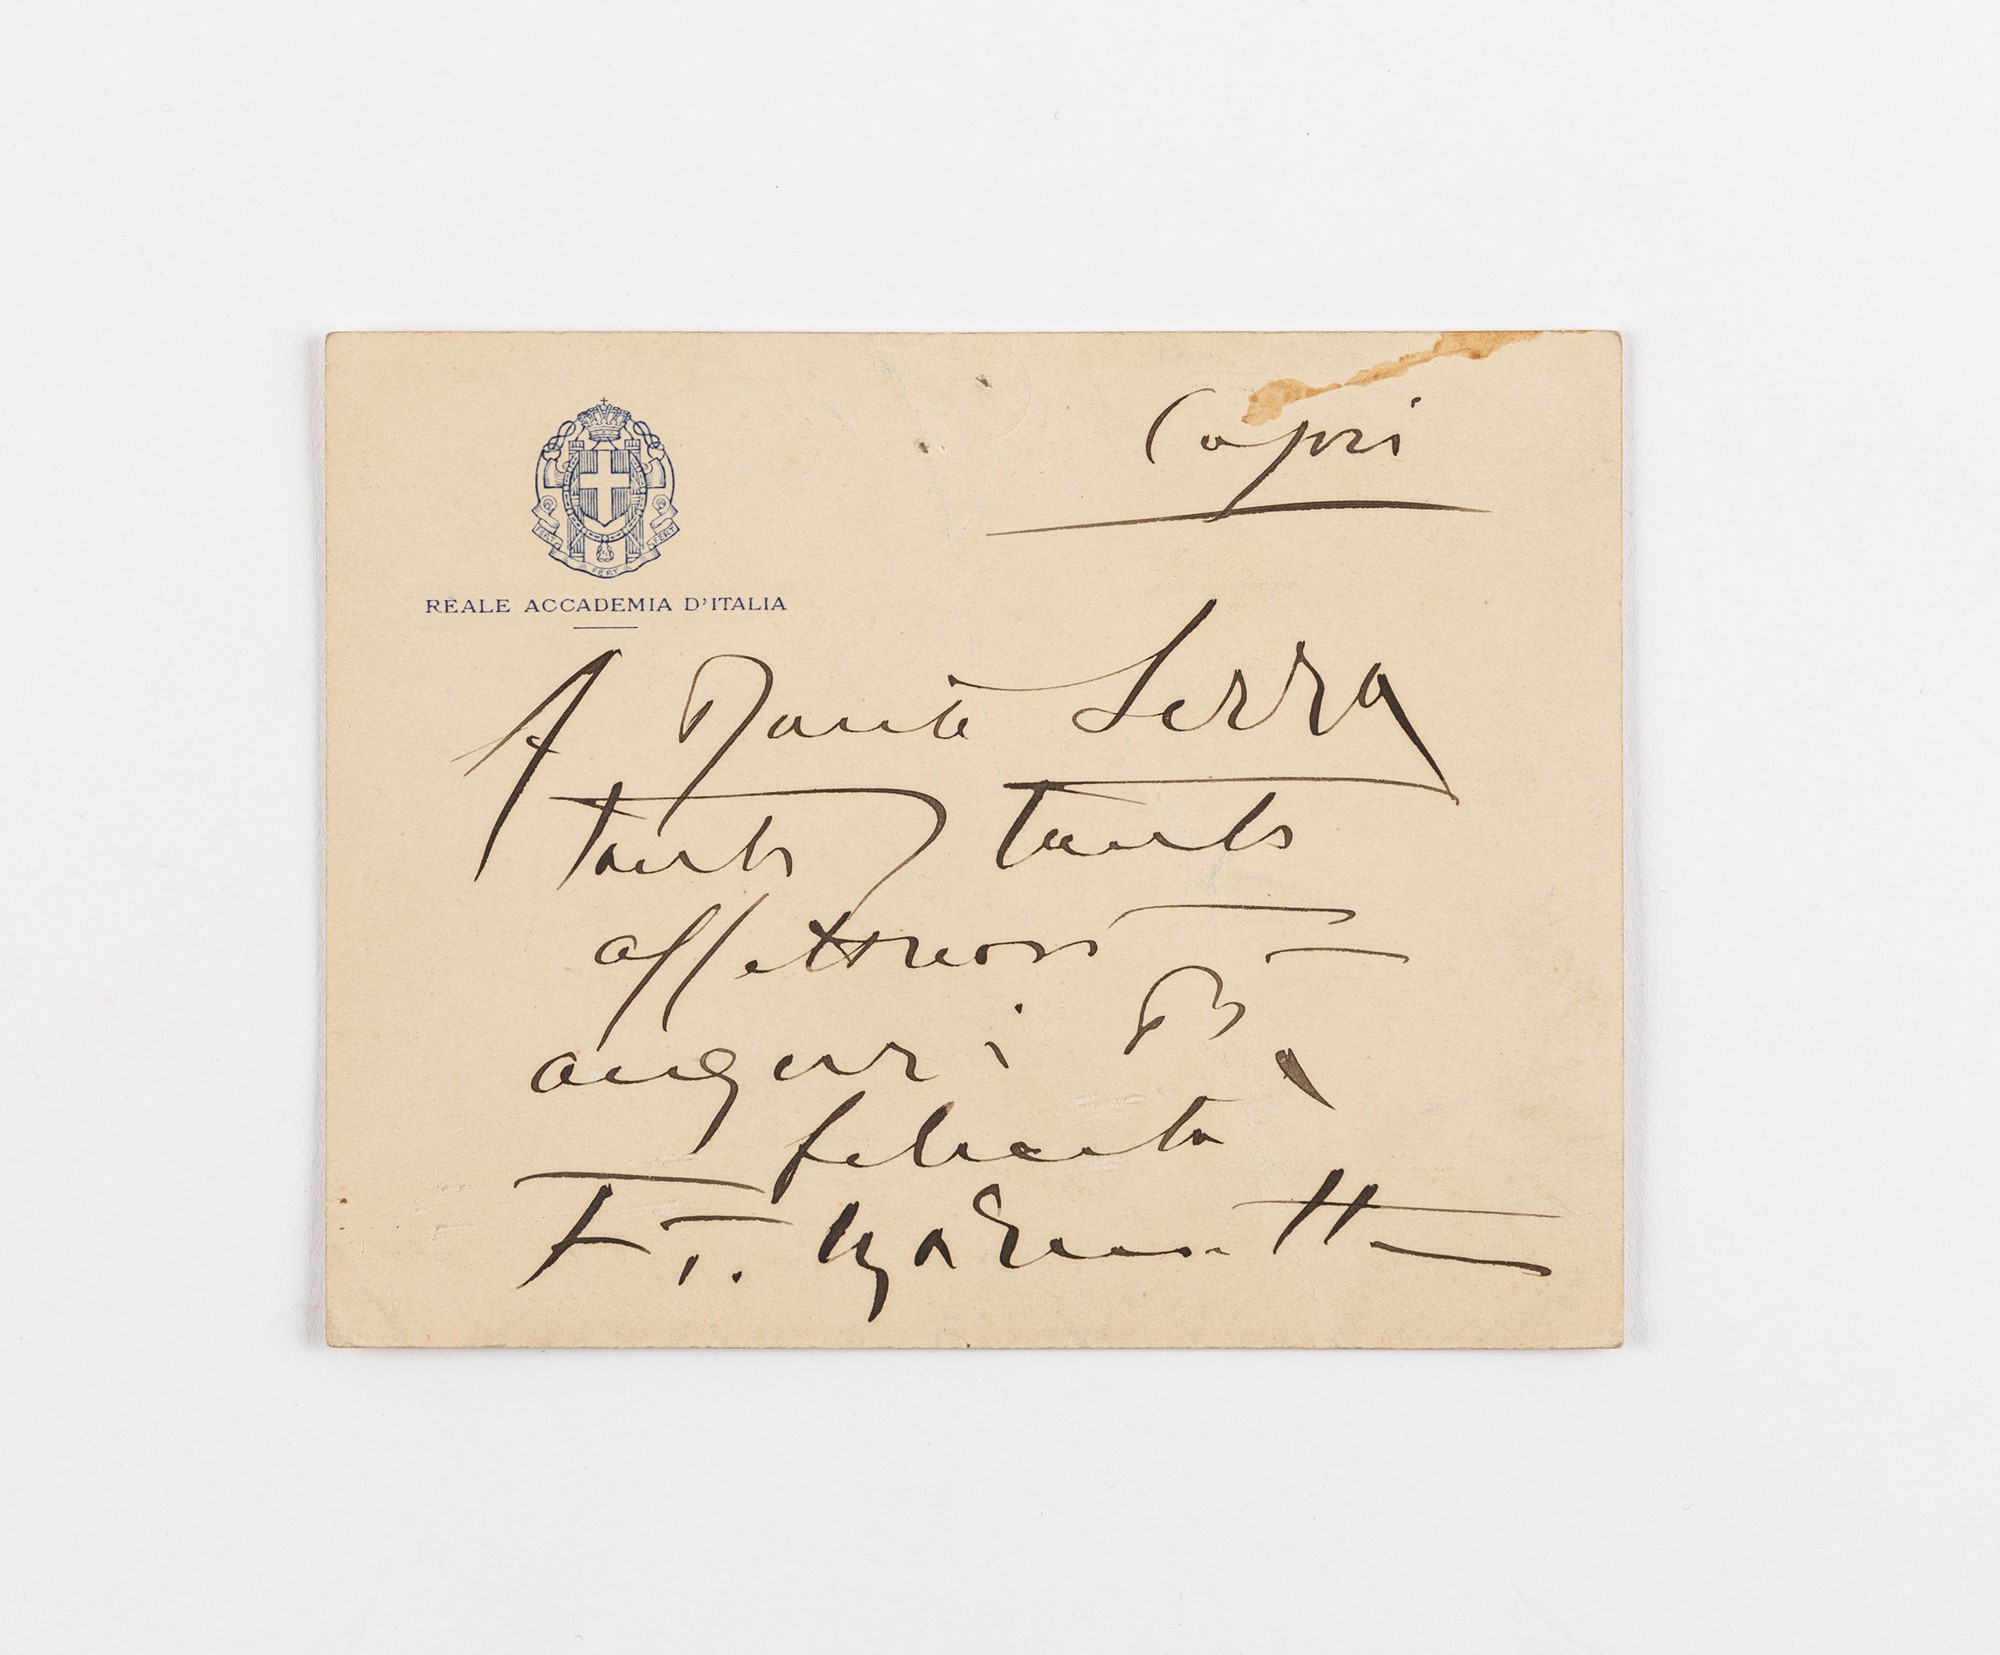 Capri
FERT FERT FERT
REALE ACCADEMIA D'ITALIA
A Dante Serra
tanti tanti
affettuosi
auguri di
felicità
F. T. Marinetti